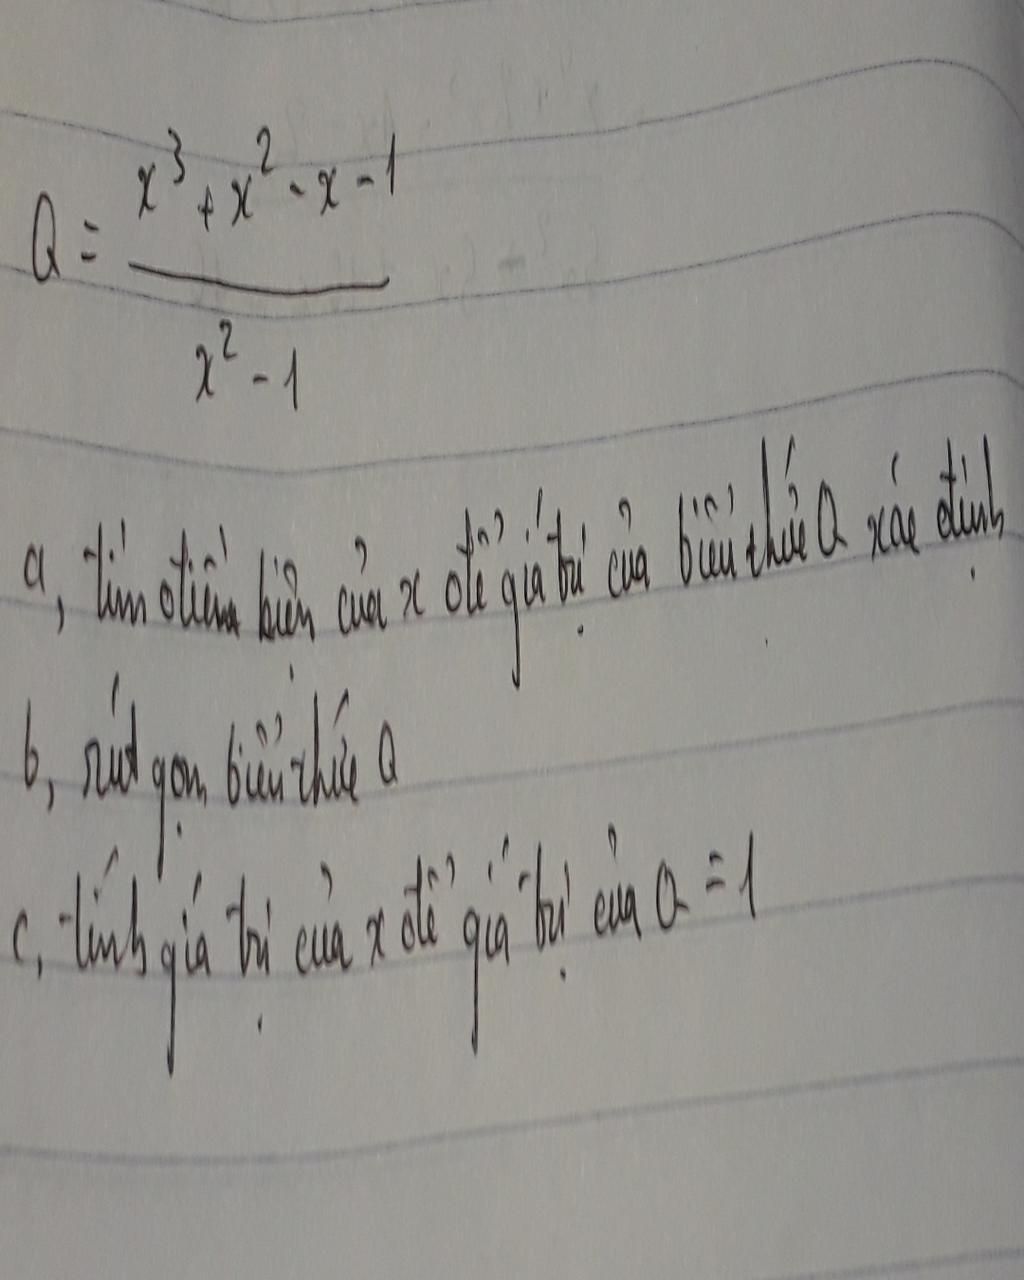 Q = \frac{x^3 + x^2 - x - 1}{x^2 - 1}
a, tìm điều kiện của x để giá trị của biểu thức Q xác định
b, rút gọn biểu thức Q
c, tính giá trị của x để giá trị của Q = 1